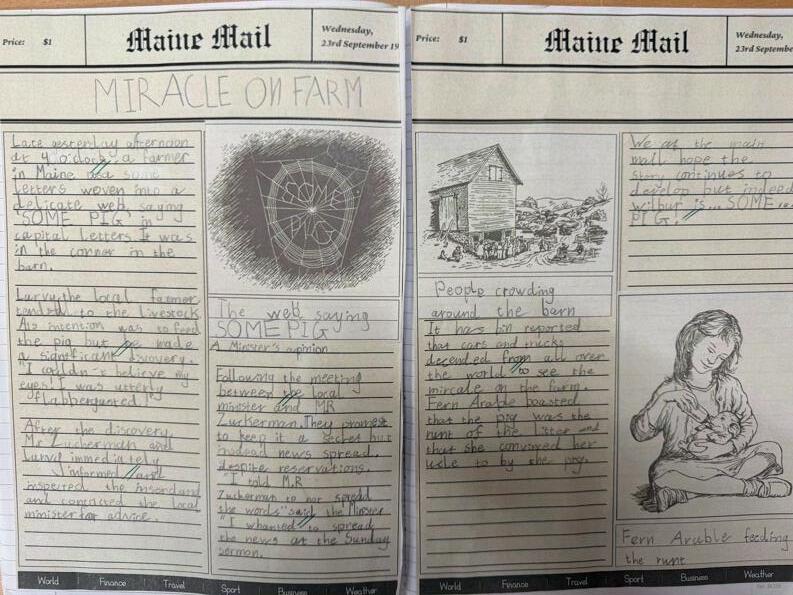 Price: $1
Maine Mail
Wednesday,
23rd September 19
MIRACLE ON FARM
Late yesterday afternoon
at 4 o'clock, a farmer
in Maine some
letters woven into a
delicate web, saying
"SOME PIG" in
capital letters. It was
in the corner in the
barn.
Larvy the local farmer
tended to the livestock.
His intention was to feed
the pig but he made
a significant discovery.
"I couldn't believe my
eyes! I was utterly
flabbergusted!"
After the discovery
Mr Zucherman and
Larvy immediately
informed and
inspected the
and contacted the local
minister for advice.
SOME
PIG
The web saying
SOME PIG
A Minister's opinion
Following the meeting
between the local
minister and MR
Zuckerman. They promest
to keep it a secret but
insdead news spread,
despite reservations.
"I told M.R
Zuckerman to not spread
the words" said the Minster
"I whanted to spread
the news at the Sunday
sermon.
World Finance Travel Sport Business Weather
Price: $1
Maine Mail
Wednesday,
23rd Septembe
People crowding
around the barn
It has bin reported
that cars and trucks
decended from all over
the world to see the
mircale on the farm.
Fern Arable boasted
that the pig was the
runt of the litter and
that she convinced her
ucle to by the pig.
We at the main
mall hope the
story continues to
develop but indeed
wilbur is... SOME...
PIG!
Fern Arable feeding
the runt
World Finance Travel Sport Business Weather